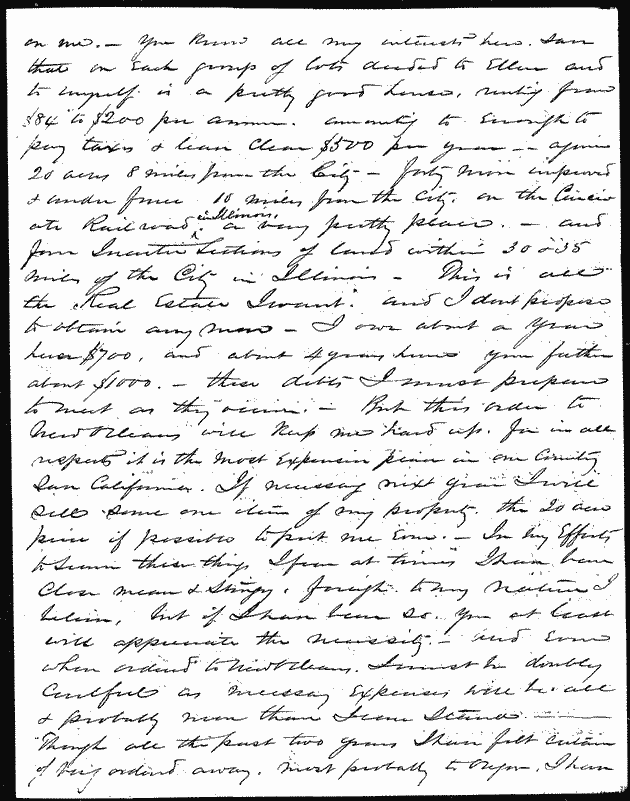 on me. — You know all my interests here. I am
that on each group of lots deeded to Ellen and
to myself is a pretty good house, renting from
$84 to $200 per annum. amounting to enough to
pay taxes & leave clear $500 per year — again
20 acres 8 miles from the City — forty more improved
& under fence 10 miles from the City, on the Cincin
ati Railroad in Illinois, a very pretty place. — and
four Sections of land within 30 & 35
miles of the City in Illinois — This is all
the Real Estate I want. and I dont propose
to obtain any more — I owe about a year
hence $700, and about 4 years hence your father
about $1000. — these debts I must prepare
to meet as they occur. — But this order to
New Orleans will keep me hard up. for in all
respects it is the most expensive place in our Country
save California. If necessary next year I will
sell some one item of my property. the 20 acre
piece if possible to put me even. — In my efforts
to secure these things I fear at times I have been
close mean & stingy, foreign to my nature I
believe, but if I have been so. you at least
will appreciate the necessity. — and even
when ordered to New Orleans. I must be doubly
careful as necessary expenses will be all
& probably more than I can stand —
Though all the past two years I have felt certain
of being ordered away. most probably to Oregon, I have